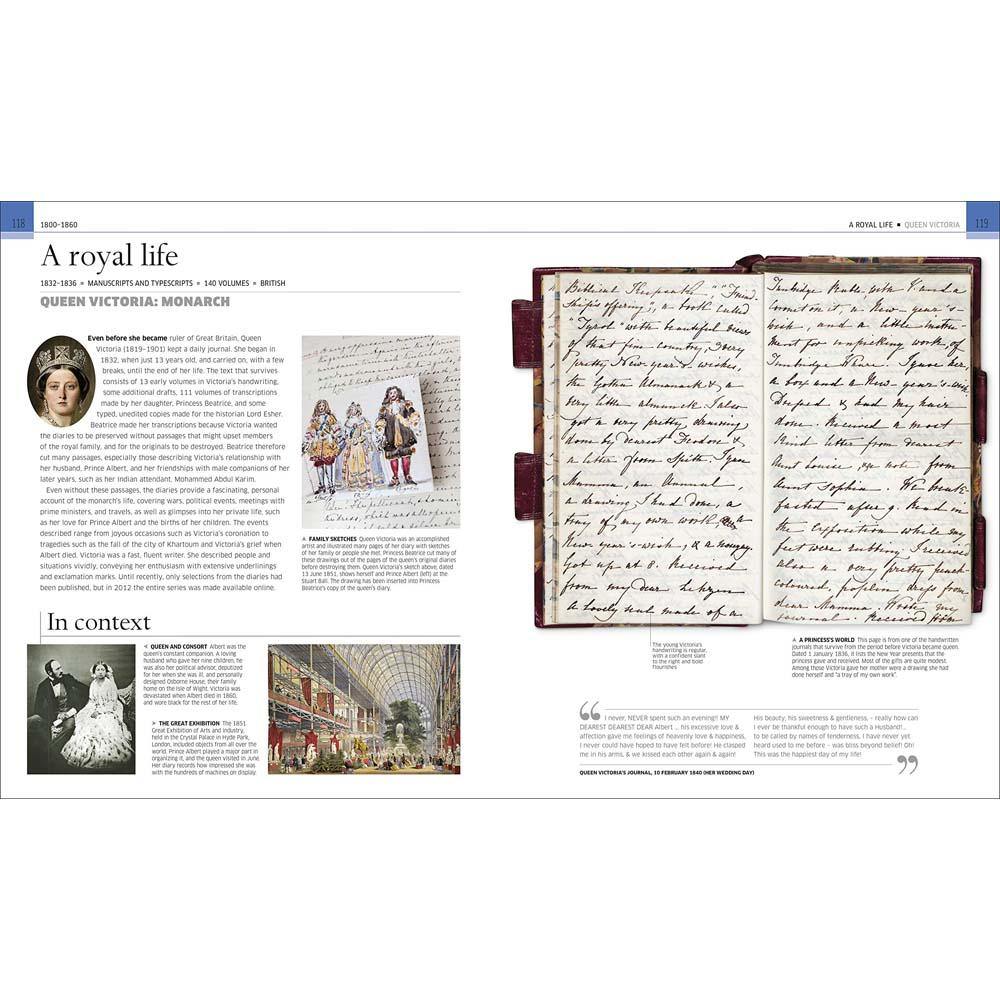 118
1800–1860
A royal life
1832–1836 ■ MANUSCRIPTS AND TYPESCRIPTS ■ 140 VOLUMES ■ BRITISH
QUEEN VICTORIA: MONARCH
Even before she became ruler of Great Britain, Queen
Victoria (1819–1901) kept a daily journal. She began in
1832, when just 13 years old, and carried on, with a few
breaks, until the end of her life. The text that survives
consists of 13 early volumes in Victoria's handwriting,
some additional drafts, 111 volumes of transcriptions
made by her daughter, Princess Beatrice, and some
typed, unedited copies made for the historian Lord Esher.
Beatrice made her transcriptions because Victoria wanted
the diaries to be preserved without passages that might upset members
of the royal family, and for the originals to be destroyed. Beatrice therefore
cut many passages, especially those describing Victoria's relationship with
her husband, Prince Albert, and her friendships with male companions of her
later years, such as her Indian attendant, Mohammed Abdul Karim.
Even without these passages, the diaries provide a fascinating, personal
account of the monarch's life, covering wars, political events, meetings with
prime ministers, and travels, as well as glimpses into her private life, such
as her love for Prince Albert and the births of her children. The events
described range from joyous occasions such as Victoria's coronation to
tragedies such as the fall of the city of Khartoum and Victoria's grief when
Albert died. Victoria was a fast, fluent writer. She described people and
situations vividly, conveying her enthusiasm with extensive underlinings
and exclamation marks. Until recently, only selections from the diaries had
been published, but in 2012 the entire series was made available online.
FAMILY SKETCHES Queen Victoria was an accomplished
artist and illustrated many pages of her diary with sketches
of her family or people she met. Princess Beatrice cut many of
these drawings out of the pages of the queen's original diaries
before destroying them. Queen Victoria's sketch above, dated
13 June 1851, shows herself and Prince Albert (left) at the
Stuart Ball. The drawing has been inserted into Princess
Beatrice's copy of the queen's diary.
In context
QUEEN AND CONSORT Albert was the
queen's constant companion. A loving
husband who gave her nine children, he
was also her political advisor, deputized
for her when she was ill, and personally
designed Osborne House, their family
home on the Isle of Wight. Victoria was
devastated when Albert died in 1860,
and wore black for the rest of her life.
THE GREAT EXHIBITION The 1851
Great Exhibition of Arts and Industry,
held in the Crystal Palace in Hyde Park,
London, included objects from all over the
world. Prince Albert played a major part in
organizing it, and the queen visited in June.
Her diary records how impressed she was
with the hundreds of machines on display.
A ROYAL LIFE ■ QUEEN VICTORIA
119
Biblical Keepsake,
ship's offering", a book called
"Tyrol" with beautiful views
of that fine country, Every
pretty New-year's wishes,
the Gotha Almanack & a
very little almanack. I also
got a very pretty drawing
done by dearest Feodore &
a letter from Späth. I gave
Mamma, an Annual,
a drawing I had done, a
tray of my own work,
New-year's-wish, & a
Got up at 8. Received
from my dear Lehzen
a lovely seal made of a
Tunbridge
a New-year's-
wish, and a little instru-
ment for unpicking work, of
Tunbridge Ware. I gave her
a box and a New-year's-wish
Dressed & had my hair
done. Received a most
kind letter from dearest
Aunt Louise, & a note from
Aunt Sophia. We break-
fasted after 9. Read in
the Exposition while my
feet were rubbing. I received
also a very pretty peach-
coloured, poplin dress from
dear Mamma. Wrote my
journal. Received from
The young Victoria's
handwriting is regular,
with a confident slant
to the right and bold
flourishes
A PRINCESS'S WORLD This page is from one of the handwritten
journals that survive from the period before Victoria became queen.
Dated 1 January 1836, it lists the New Year presents that the
princess gave and received. Most of the gifts are quite modest.
Among those Victoria gave her mother were a drawing she had
done herself and "a tray of my own work".
“ I never, NEVER spent such an evening!! MY
DEAREST DEAREST DEAR Albert ... his excessive love &
affection gave me feelings of heavenly love & happiness,
I never could have hoped to have felt before! He clasped
me in his arms, & we kissed each other again & again!
His beauty, his sweetness & gentleness, – really how can
I ever be thankful enough to have such a Husband!...
to be called by names of tenderness, I have never yet
heard used to me before – was bliss beyond belief! Oh!
This was the happiest day of my life! ”
QUEEN VICTORIA'S JOURNAL, 10 FEBRUARY 1840 (HER WEDDING DAY)